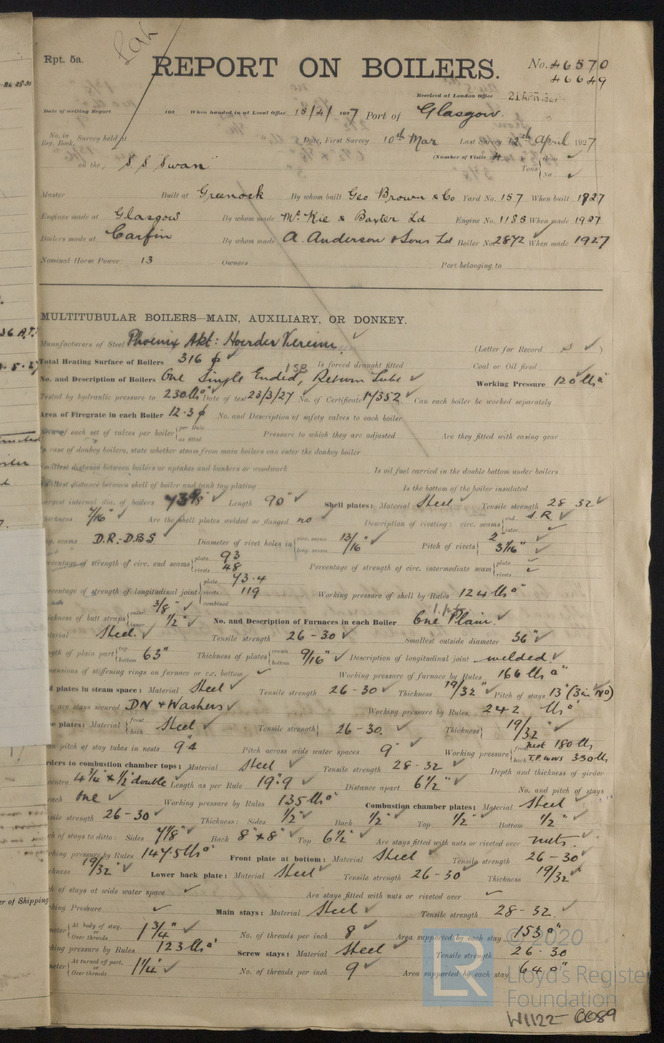 Rpt. 5a.
REPORT ON BOILERS.
No. 46570
46649
Received at London Office 21 APR 1927
Date of writing Report 192 When handed in at Local Office 18/4/1927 Port of Glasgow.
No. in Reg. Book. Survey held at Date, First Survey 10th Mar Last Survey 12th April 1927
on the S S "Swan" (Number of Visits
Tons
Master Built at Greenock By whom built Geo Brown & Co Yard No. 157 When built 1927
Engines made at Glasgow By whom made Mc Kie & Baxter Ld Engine No. 1188 When made 1927
Boilers made at Carfin By whom made A. Anderson & Sons Ld Boiler No. 2872 When made 1927
Nominal Horse Power 13 Owners Port belonging to
MULTITUBULAR BOILERS MAIN, AUXILIARY, OR DONKEY.
Manufacturers of Steel Phoenix Akt: Hoerder Verein. (Letter for Record S)
Total Heating Surface of Boilers 316 Is forced draught fitted Coal or Oil fired
No. and Description of Boilers One Single Ended, Return Tube Working Pressure 120 lbs
Tested by hydraulic pressure to 230 lbs Date of test 23/3/27 No. of Certificate 17352 Can each boiler be worked separately
Area of Firegrate in each Boiler 12.3 No. and Description of safety valves to each boiler
Area of each set of valves per boiler Pressure to which they are adjusted Are they fitted with easing gear
In case of donkey boilers, state whether steam from main boilers can enter the donkey boiler
Smallest distance between boilers or uptakes and bunkers or woodwork Is oil fuel carried in the double bottom under boilers
Smallest distance between shell of boiler and tank top plating Is the bottom of the boiler insulated
Largest internal dia. of boilers Length 90" Shell plates: Material Steel Tensile strength 28 32
Thickness 7/16" Are the shell plates welded or flanged no Description of riveting: circ. seams S R
long. seams D.R.-D.B.S Diameter of rivet holes in 13/16" Pitch of rivets 2" 3 1/16"
Percentage of strength of circ. end seams 93 48 Percentage of strength of circ. intermediate seam
Percentage of strength of longitudinal joint 73.4 119 Working pressure of shell by Rules 124 lbs
Thickness of butt straps 3/8" 1/2" No. and Description of Furnaces in each Boiler One Plain
Material Steel. Tensile strength 26-30 Smallest outside diameter 36"
Length of plain part 63" Thickness of plates 9/16" Description of longitudinal joint welded.
Dimensions of stiffening rings on furnace or c.c. bottom Working pressure of furnace by Rules 166 lbs
End plates in steam space: Material Steel Tensile strength 26-30 Thickness 19/32" Pitch of stays 13" (3 in No)
How are stays secured DN & Washers Working pressure by Rules 242 lbs
Tube plates: Material Steel Tensile strength 26-30. Thickness 19/32"
Mean pitch of stay tubes in nests 9.4 Pitch across wide water spaces 9" Working pressure front 180 lbs back T.P. WWS 350 lbs
Girders to combustion chamber tops: Material Steel Tensile strength 28-32 Depth and thickness of girder
at centre 4 1/4" x 1/2" double Length as per Rule 19.9 Distance apart 6 1/2" No. and pitch of stays
in each one Working pressure by Rules 135 lbs Combustion chamber plates: Material Steel
Tensile strength 26-30 Thickness: Sides 1/2" Back 1/2" Top 1/2" Bottom 1/2"
Pitch of stays to ditto: Sides 7 7/8" Back 8" x 8" Top 6 1/2" Are stays fitted with nuts or riveted over nuts.
Working pressure by Rules 147.5 lbs Front plate at bottom: Material Steel Tensile strength 26-30
Thickness 19/32" Lower back plate: Material Steel Tensile strength 26-30 Thickness 19/32"
Pitch of stays at wide water space Are stays fitted with nuts or riveted over
Working Pressure Main stays: Material Steel Tensile strength 28-32
Diameter At body of stay, or Over threads 1 3/4" No. of threads per inch 8 Area supported by each stay 153
Working pressure by Rules 123 lbs Screw stays: Material Steel Tensile strength 26-30
Diameter At turned off part, or Over threads 1 1/4" No. of threads per inch 9 Area supported by each stay 64
© 2020
Lloyd's Register
Foundation
W1122-0089